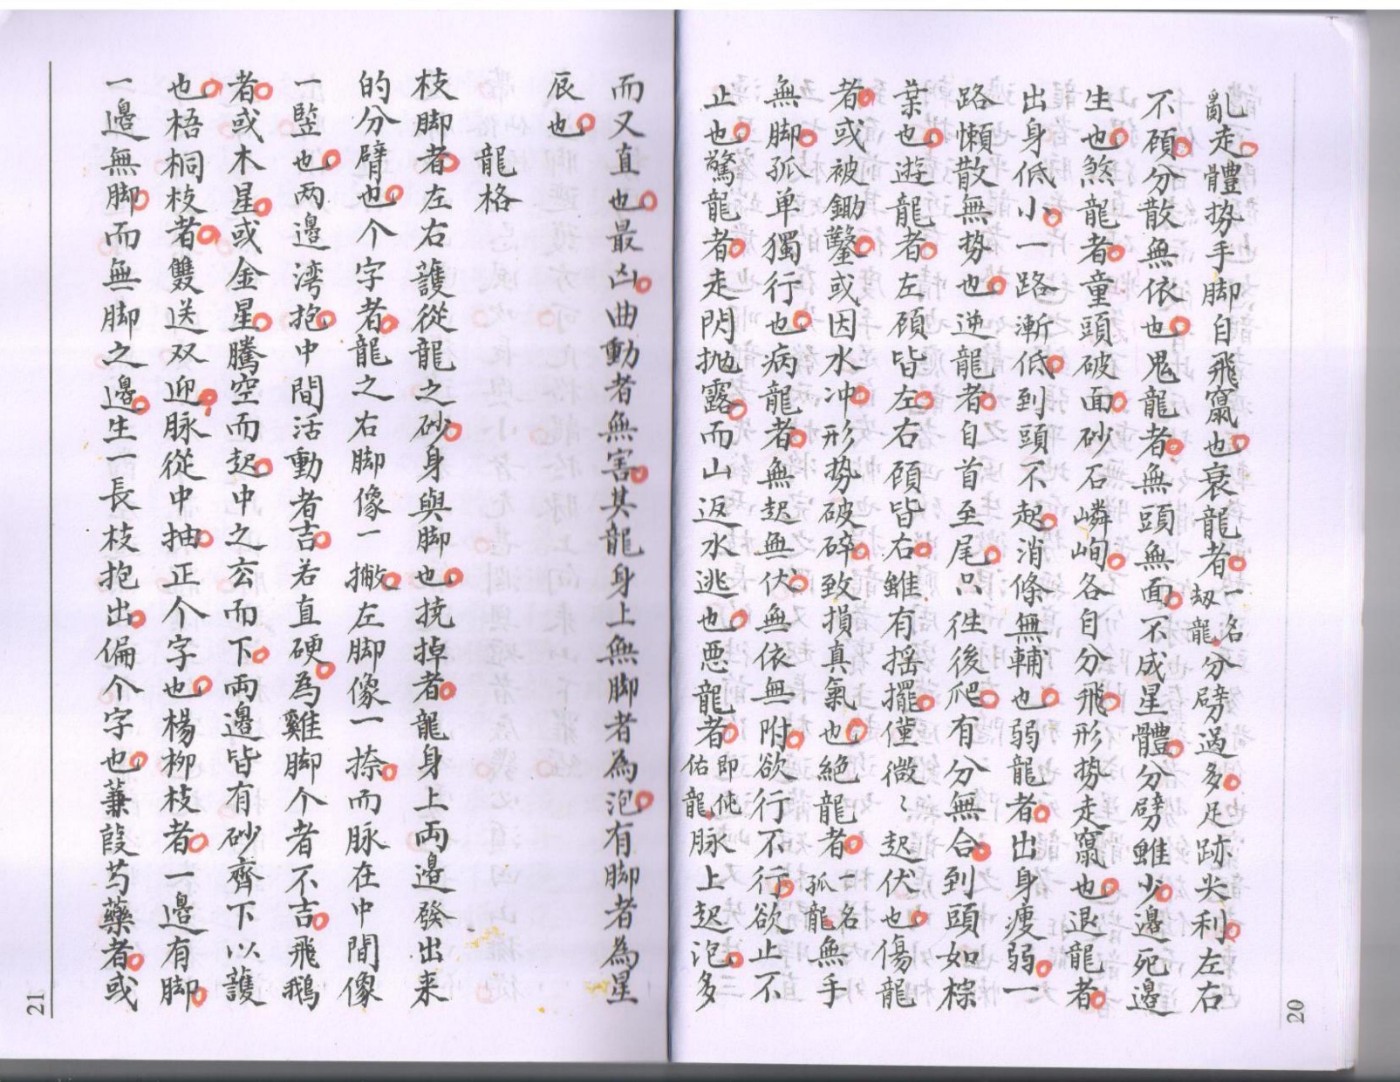 亂走體势手脚自飛竄也衰龍者一名刼龍分劈過多足跡尖利左右
不顾分散無依也鬼龍者無頭無面不成星體分劈雖少邊死邊
生也煞龍者童頭破面砂石嶙峋各自分飛形势走竄也退龍者
出身低小一路漸低到頭不起消條無輔也弱龍者出身瘦弱一
路懒散無势也逆龍者自首至尾忽往後爬有分無合到頭如棕
葉也遊龍者左顾皆左右顾皆右雖有摇擺僅微微起伏也傷龍
者或被鋤鑿或因水冲形势破碎致損真氣也絕龍者孤龍名無手
無脚孤单獨行也病龍者無起無伏無依無附欲行不行欲止不
止也驚龍者走閃抛露而山返水逃也恶龍者即他佑龍脉上起泡多
而又直也最凶曲動者無害其龍身上無脚者為泡有脚者為星
辰也
龍格
枝脚者左右護從龍之砂身與脚也挠掉者龍身上両邊發出来
的分臂也个字者龍之右脚像一撇左脚像一捺而脉在中間像
一竪也両邊湾抱中間活動者吉若直硬為雞脚个者不吉飛鵝
者或木星或金星騰空而起中之玄而下両邊皆有砂齊下以護
也梧桐枝者雙送双迎脉從中抽正个字也楊柳枝者一邊有脚
一邊無脚而無脚之邊生長枝抱出偏个字也蒹葭芍藥者或
20
21